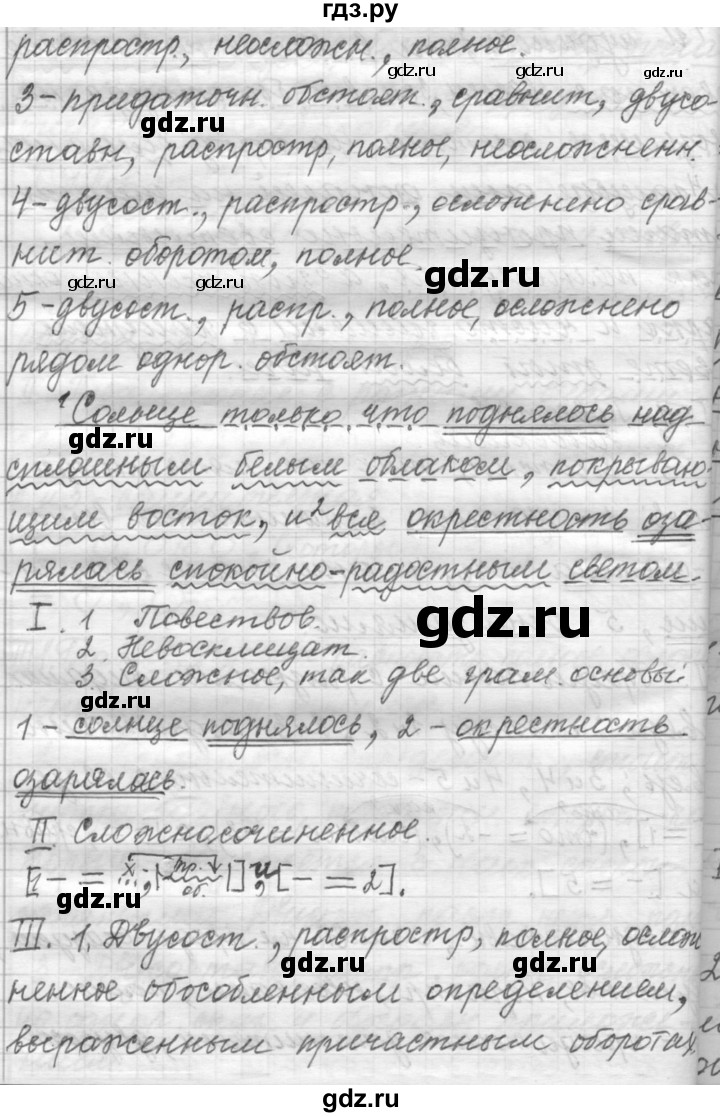 гдз.ру
распростр., неосложн., полное.
gdz.ru gdz.ru gdz.ru
3-придаточн. обстоят., сравнит., двусо-
gdz.ru
ставн., распростр., полное, неосложненн.
4-двусост., распростр., осложнено срав-
нит. оборотом, полное.
gdz.ru
gdz.ru gdz.ru
5-двусост., распр., полное, осложнено
рядом однор. обстоят.
1 Солнце только что поднялось над
gdz.ru
сплошным белым облаком, покрываю-
щим восток, и 2 вся окрестность оза-
рялась спокойно-радостным светом.
I. 1 Повествов.
gdz.ru
2. Невосклицат.
3. Сложное, так две грам. основы:
gdz.ru
1 - солнце поднялось, 2 - окрестность
озарялась.
II Сложносочиненное.
[1 - = , |пр. об.|], и [- = 2].
gdz.ru
III. 1. Двусост., распростр., полное, ослож
gdz.ru gdz.ru gdz.ru
ненное обособленным определением,
выраженным причастным оборотах
gdz.ru